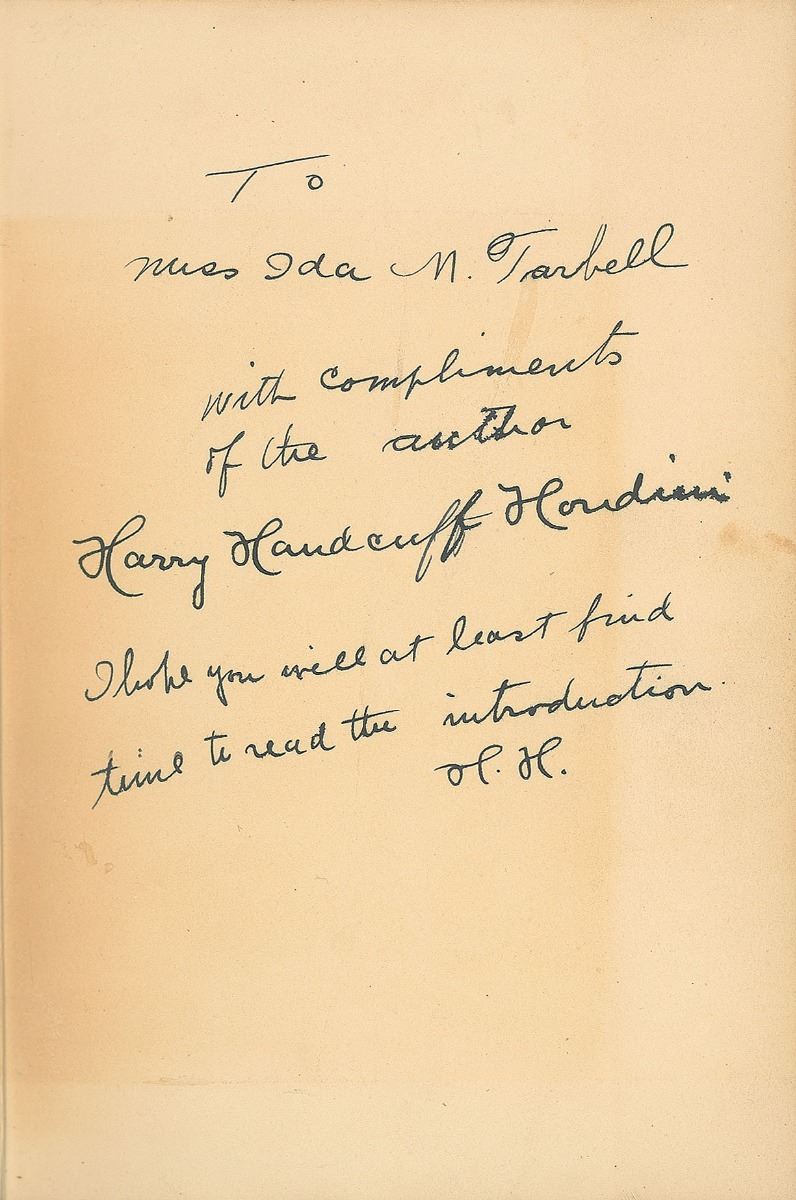 To
Miss Ida M. Tarbell
with compliments
of the author
Harry Handcuff Houdini
I hope you will at least find
time to read the introduction.
H. H.